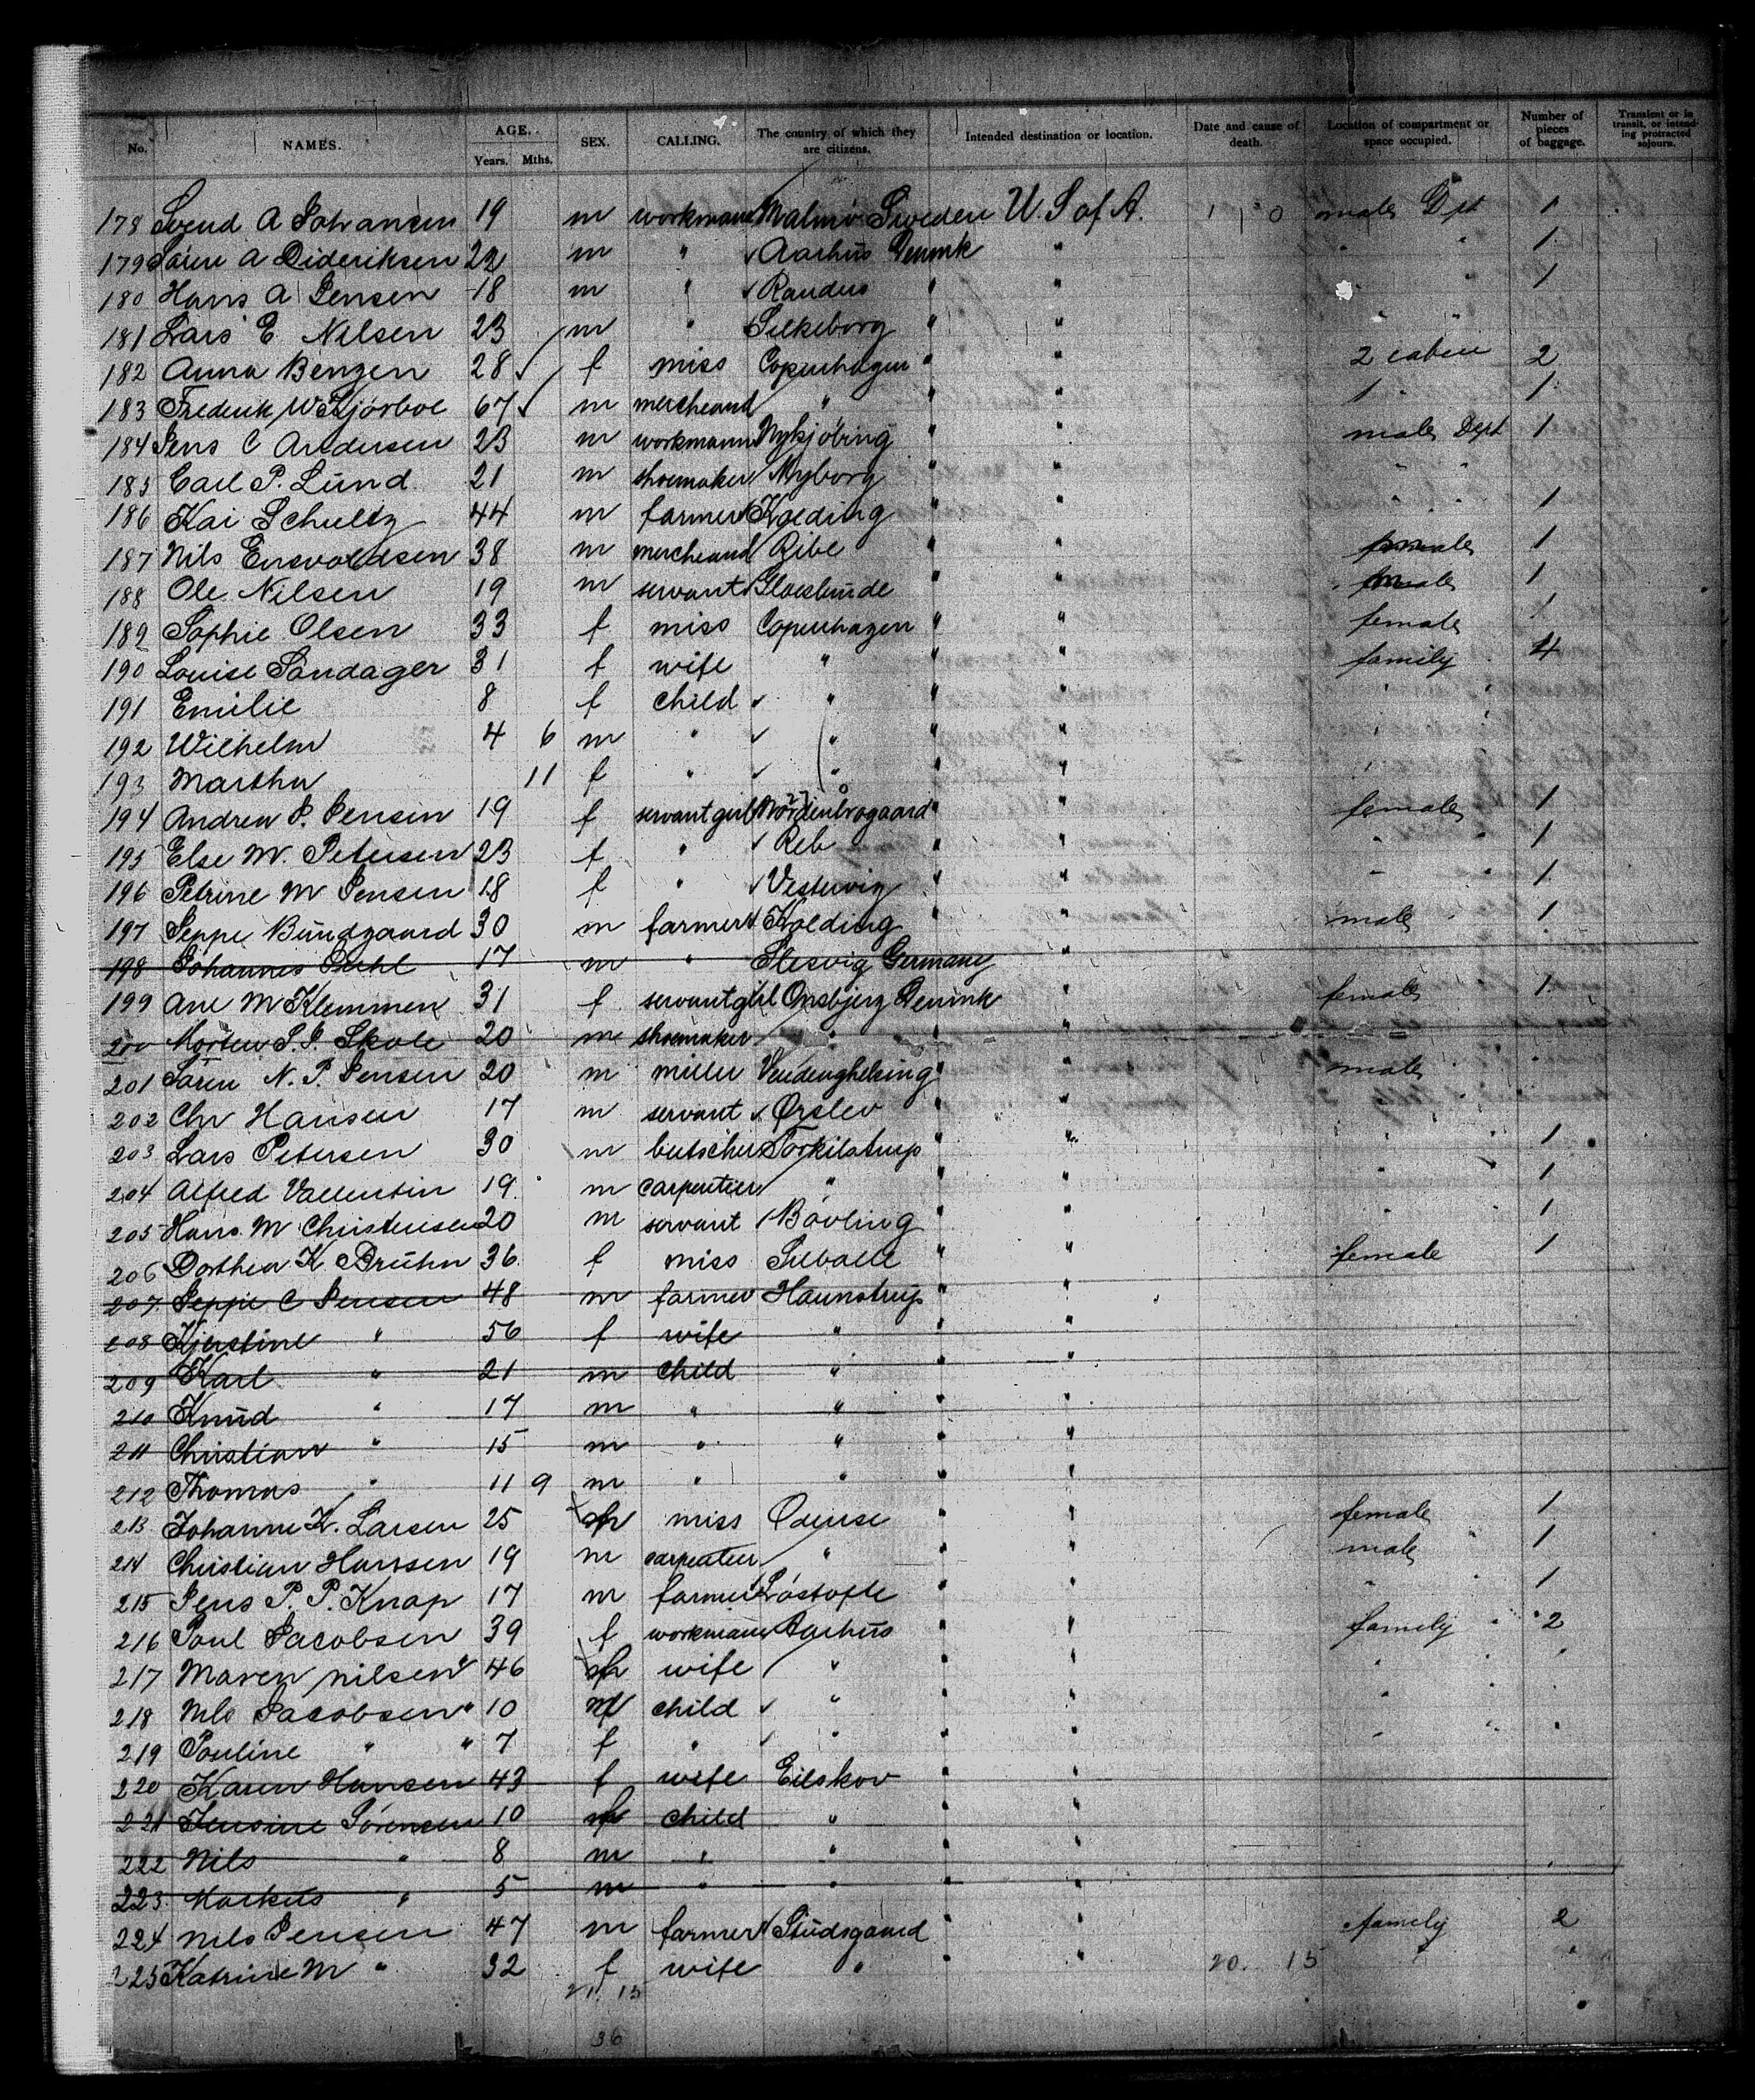 No. NAMES. AGE. Years. Mths. SEX. CALLING. The country of which they are citizens. Intended destination or location. Date and cause of death. Location of compartment or space occupied. Number of pieces of baggage. Transient or in transit, or intending protracted sojourn.
178 Svend A Johansen 19 m workmann Malmö Sweden U. S of A. male Dpt 1
179 Sören A Dideriksen 22 m " Aarhus Denmk " " " 1
180 Hans A Jensen 18 m " Randers " " " 1
181 Lars E Nilsen 23 m " Silkeborg " " " "
182 Anna Benzen 28 f miss Copenhagen " " 2 cabin 2
183 Frederik W Kjörboe 67 m mercheand " " " 1 " 1
184 Jens C Andersen 23 m workmann Nykjöbing " " male Dept 1
185 Carl P. Lund 21 m shoemaker Nyborg " " " "
186 Kai Schultz 44 m farmer Kolding " " " " 1
187 Nils Ensvoldsen 38 m mercheand Ribe " " male 1
188 Ole Nilsen 19 m servant " " male 1
189 Sophie Olsen 33 f miss Copenhagen " " female 1
190 Louise Söndager 31 f wife " " " family 4
191 Emilie 8 f child " " " " "
192 Wilhelm 4 6 m " " " " "
193 Martha 11 f " " " " "
194 Andrea P. Jensen 19 f servant girl " " female 1
195 Else M. Petersen 23 f " Reb " " " " 1
196 Petrine M Jensen 18 f " Vestervig " " " " 1
197 Jeppe Bundgaard 30 m farmer Kolding " " male " 1
198 Johannes 17 m " Slesvig Germany "
199 Ane M Klemmen 31 f servant girl Onsbjerg Denmk " female 1
200 Morten P. P. Skole 20 m shoemaker " " "
201 Sören N. P. Jensen 20 m miller " " male "
202 Chr Hansen 17 m servant Ørslev " "
203 Lars Petersen 30 m butscher Torkilstrup " " " " 1
204 Alfred Vallentin 19 m carpentier " " " " 1
205 Hans M Christensen 20 m servant Bövling " " " 1
206 Dorthea K Bruhn 36 f miss " " female 1
207 Jeppe C Jensen 48 m farmer Haunstrup " "
208 Kjerstine " 56 f wife " " "
209 Karl " 21 m child " " "
210 Knud " 17 m " " " "
211 Christian " 15 m " " " "
212 Thomas " 11 9 m " " " "
213 Johanne K. Larsen 25 f miss Odense " " female 1
214 Christian Hansen 19 m carpentier " " " male " 1
215 Jens P. P. Knap 17 m farmer Löstofte " " " 1
216 Poul Jacobsen 39 f workmann Aarhus " " family " 2
217 Maren Nilsen " 46 f wife " " " " "
218 Nils Jacobsen " 10 m child " " " "
219 Pouline " " 7 f " " " " " "
220 Karen Hansen 43 f wife Eilskov " "
221 Jensine Sörensen 10 f child " " "
222 Nils " 8 m " " " "
223 Markus " 5 m " " " "
224 Nils Jensen 47 m farmer Studsgaard " " family 2
225 Katrine M " 32 f wife " " " 20. 15 " "
21 15
36